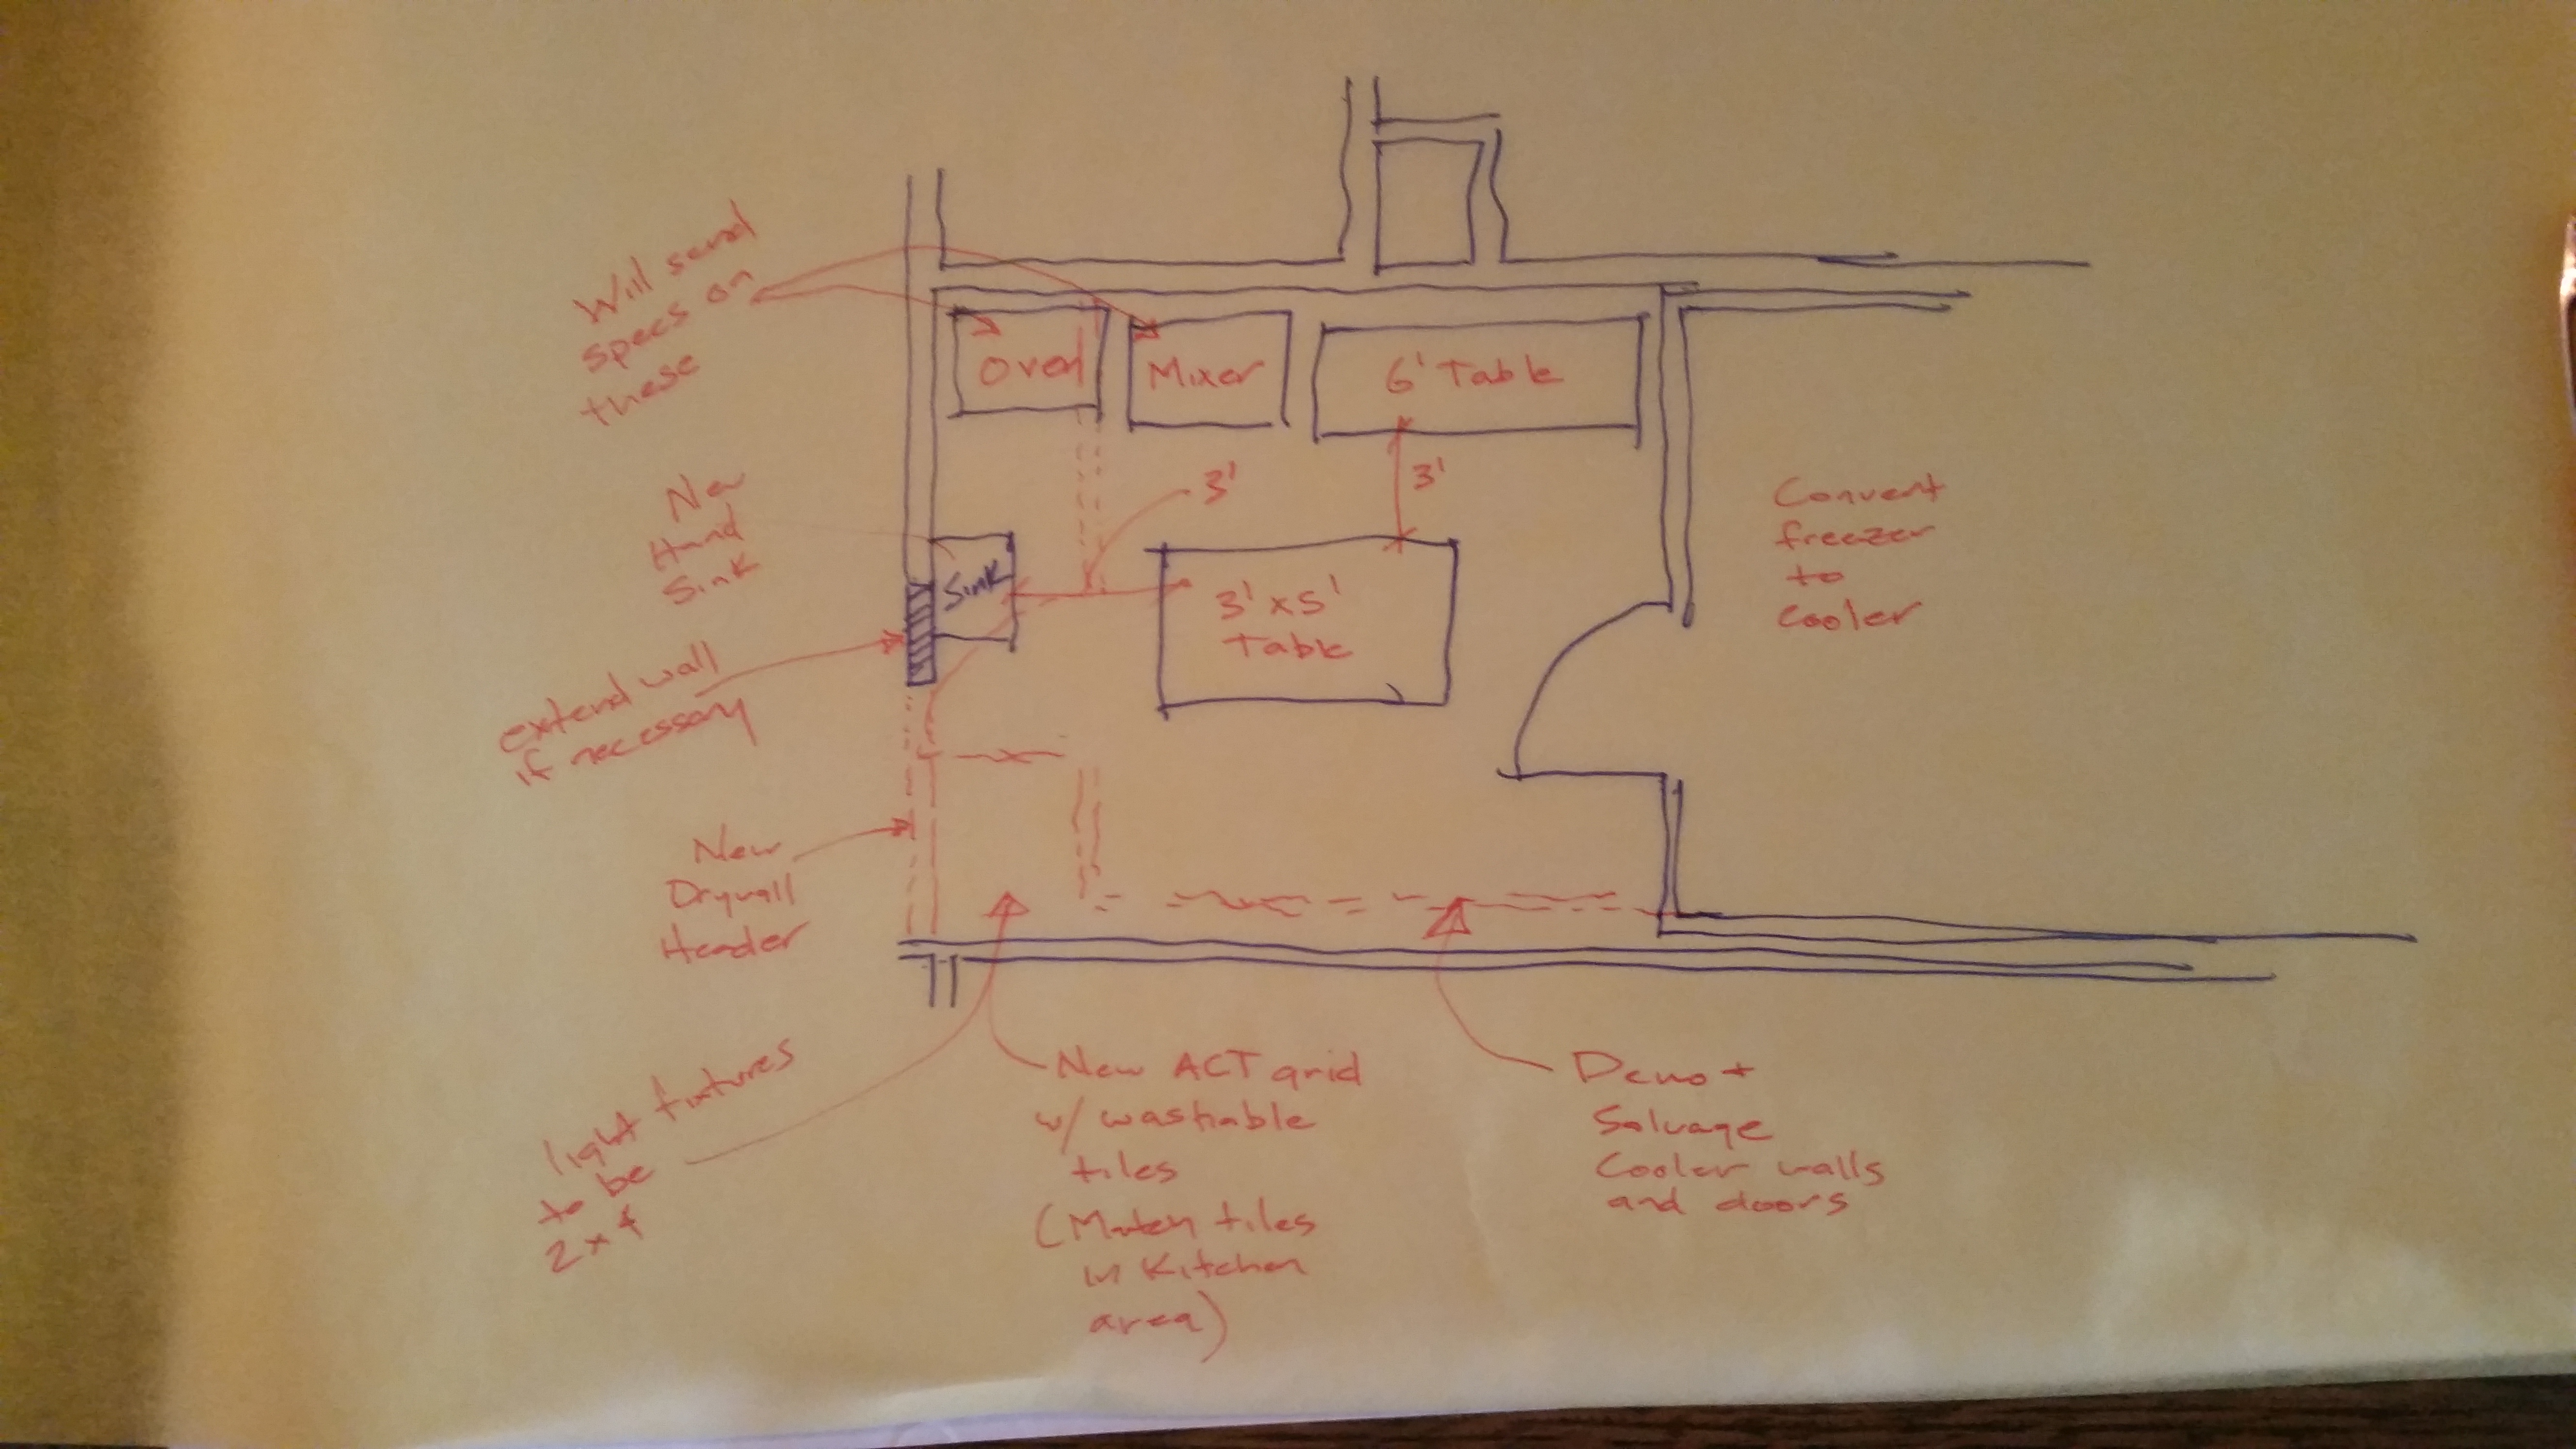 Will send
specs on
these
Oven
Mixer
6' Table
3'
3'
New
Hand
Sink
Sink
3' x 5'
Table
Convert
freezer
to
Cooler
extend wall
if necessary
New
Drywall
Header
light fixtures
to be
2 x 4
New ACT grid
w/ washable
tiles
(Match tiles
in Kitchen
area)
Demo +
Salvage
Cooler walls
and doors